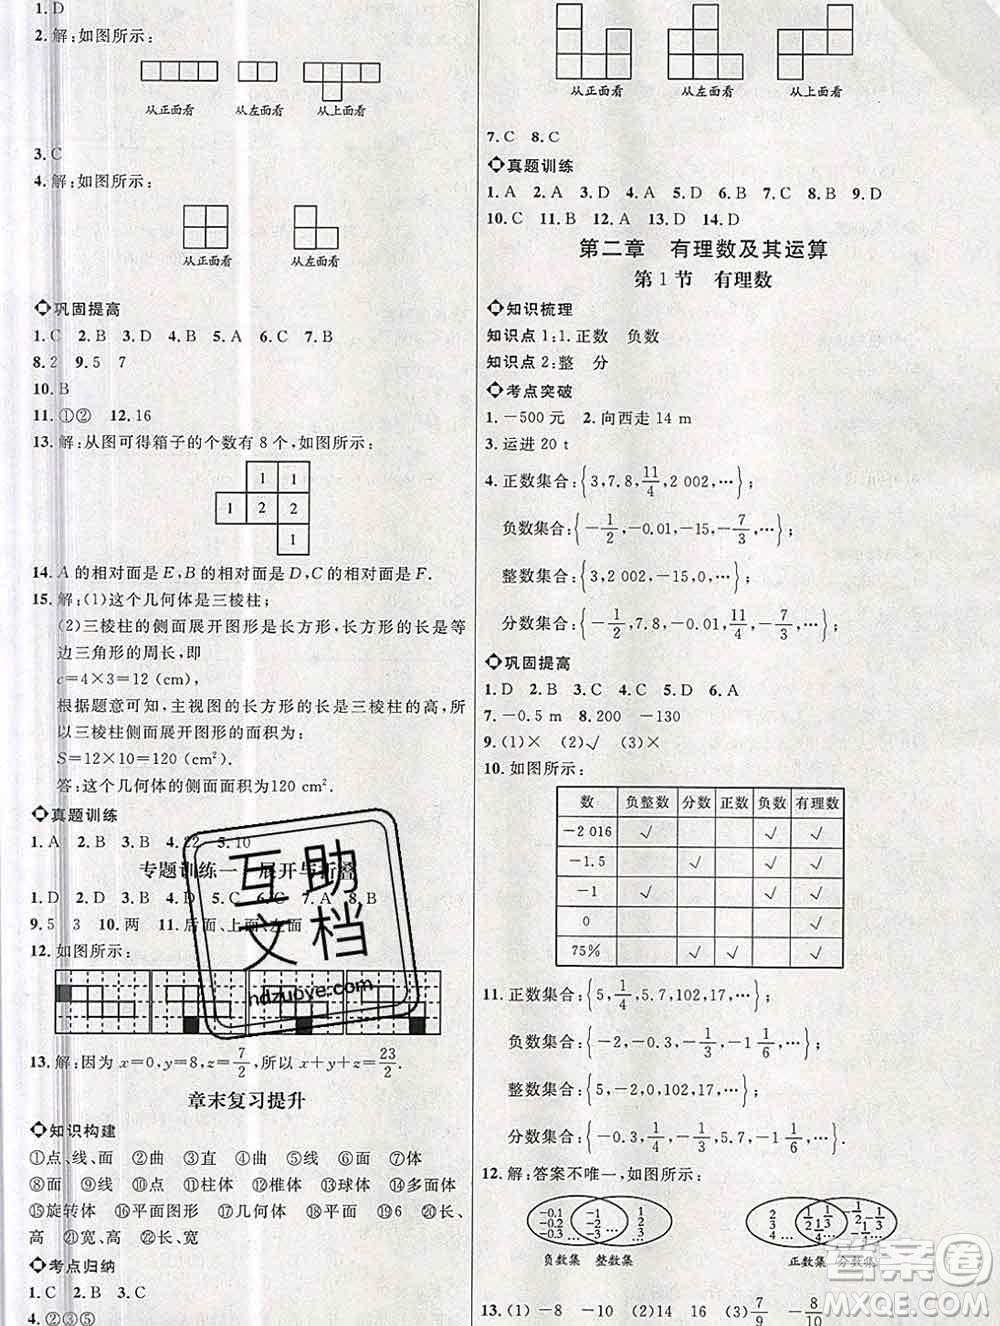 1.D
2.解:如图所示:
从正面看 从左面看 从上面看
3.C
4.解:如图所示:
从正面看 从左面看
巩固提高
1.C 2.B 3.D 4.B 5.A 6.B 7.B
8.2 9.5 7
10.B
11.①② 12.16
13.解:从图可得箱子的个数有8个,如图所示:
1 1
1 2 2
1
14.A的相对面是E,B的相对面是D,C的相对面是F.
15.解:(1)这个几何体是三棱柱;
(2)三棱柱的侧面展开图形是长方形,长方形的长是等
边三角形的周长,即
c=4×3=12(cm),
根据题意可知,主视图的长方形的长是三棱柱的高,所
以三棱柱侧面展开图形的面积为:
S=12×10=120(cm²).
答:这个几何体的侧面面积为120 cm².
真题训练
1.A 2.B 3.B 4.22 5.10
专题训练一 展开与折叠
1.D 2.B 3.B 4.D 5.C 6.C 7.A 8.B
9.5 3 10.两 11.后面、上面、左面
12.如图所示:
13.解:因为x=0,y=8,z=7/2,所以x+y+z=23/2.
章末复习提升
知识构建
①点、线、面 ②曲 ③直 ④曲 ⑤线 ⑥线 ⑦体
⑧面 ⑨线 ⑩点 ⑪柱体 ⑫椎体 ⑬球体 ⑭多面体
⑮旋转体 ⑯平面图形 ⑰几何体 ⑱平面 ⑲6 ⑳长、
高 ㉑宽、高 ㉒长、宽
考点归纳
1.C 2.B 3.C
4.②③⑤
从正面看 从左面看 从上面看
7.C 8.C
真题训练
1.A 2.A 3.D 4.A 5.D 6.B 7.C 8.B 9.D
10.C 11.B 12.A 13.D 14.D
第二章 有理数及其运算
第1节 有理数
知识梳理
知识点1:1.正数 负数
知识点2:整 分
考点突破
1.-500元 2.向西走14 m
3.运进20 t
4.正数集合:{3,7.8,11/4,2 002,…};
负数集合:{-1/2,-0.01,-15,-7/3,…};
整数集合:{3,2 002,-15,0,…};
分数集合:{-1/2,7.8,-0.01,11/4,-7/3,…}.
巩固提高
1.D 2.B 3.C 4.D 5.D 6.A
7.-0.5 m 8.200 -130
9.(1)× (2)√ (3)×
10.如图所示:
数 负整数 分数 正数 负数 有理数
-2 016 √ √ √
-1.5 √ √ √
-1 √ √ √
0 √
75% √ √ √
11.正数集合:{5,1/4,5.7,102,17,…};
负数集合:{-0.3,-2,-1/3,-1 1/6,…};
整数集合:{5,-2,0,102,17,…};
分数集合:{-0.3,1/4,-1/3,5.7,-1 1/6,…}.
12.解:答案不唯一,如图所示:
-0.1 -0.2 -0.3 … -1 -2 -3 … 1 2 3 …
负数集 整数集
2 3 4 … 1/2 1/3 1/4 … -1/2 -1/3 -1/4 …
正数集 分数集
13.(1)-8 -10 (2)14 16 (3)7/9 -8/10
互助
文档
hdzuoye.com
答案圈
MXQE.COM